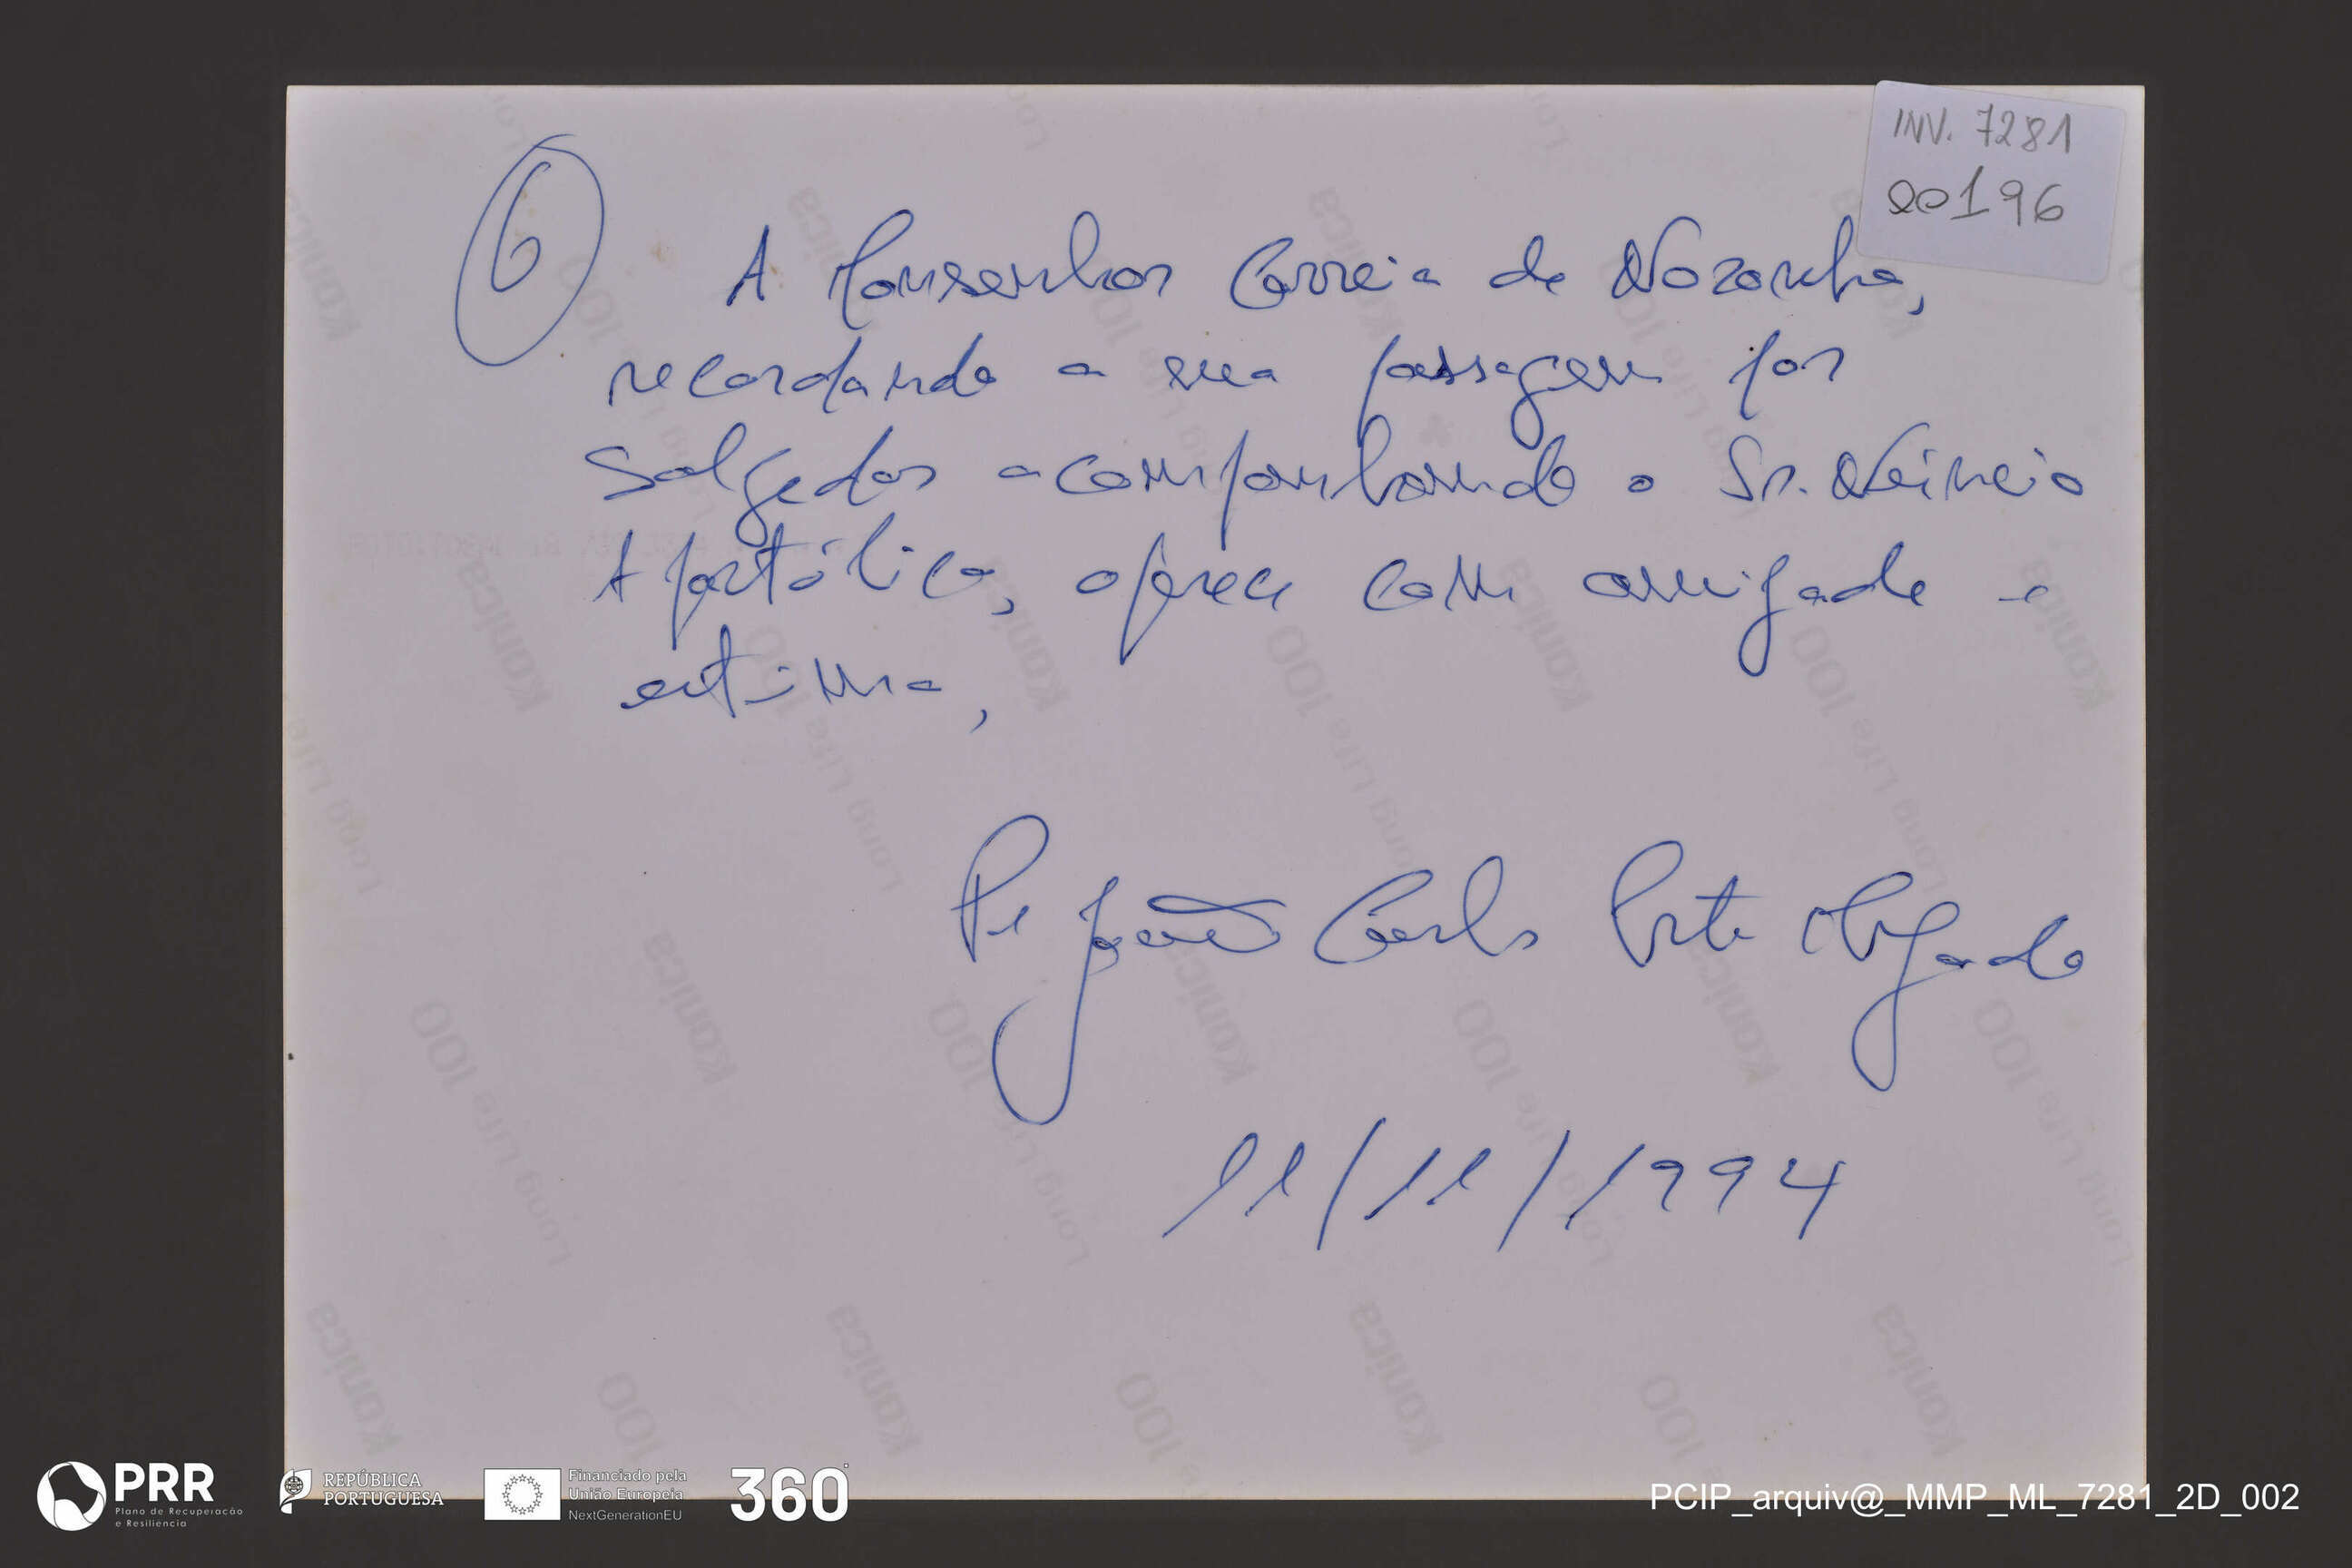 INV. 7281
00196
6
A Monsenhor Correia de Noronha,
recordando a sua passagem por
Salgedas acompanhando o Sr. Núncio
Apostólico, oferece com amizade e
estima,
Pe João Carlos
11/11/1994
Konica
Long Life 100
PRR
Plano de Recuperação
e Resiliência
REPÚBLICA
PORTUGUESA
Financiado pela
União Europeia
NextGenerationEU
360°
PCIP_arquiv@_MMP_ML_7281_2D_002